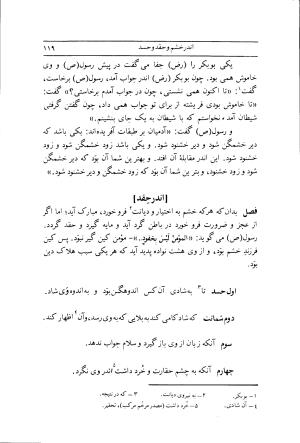 اندر خشم و حقد و حسد
۱۱۹
یکی بوبکر را (رض) جفا می‌گفت در پیش رسول(ص) و وی
خاموش همی بود. چون بوبکر (رض) اندر جواب آمد، رسول(ص) برخاست،
گفت¹: «تا اکنون همی نشستی، چون در جواب آمدم برخاستی؟» گفت:
«تا خاموش بودی فریشته از برای تو جواب همی داد، چون گفتن گرفتی
شیطان آمد، نخواستم که با شیطان به یک جای بنشینم.»
و رسول(ص) گفت: «آدمیان بر طبقات آفریده‌اند: یکی باشد که
دیر خشمگن شود و دیر خشنود شود. و یکی باشد زود خشمگن شود و زود
خشنود شود. این اندر مقابلهٔ آن افتد. و بهترین شما آن بود که دیر خشمگن
شود و زود خشنود، و بترین شما آن بود که زود خشمگن شود و دیر خشنود شود.»
[اندر حقد]
فصل بدان که هر که خشم به اختیار و دیانت² فرو خورد، مبارک آید؛ اما اگر
از عجز و ضرورت فرو خورد در باطن گرد آید و مایه گیرد و حقد گردد.
رسول(ص) می‌گوید: «المؤمن لیس بحقود. — مؤمن کین‌گیر نبود. پس کین
فرزند خشم بود، و از وی هشت نواده پدید آید که هر یکی سبب هلاک دین
بود.
اول حسد تا³ به شادی آن کس اندوهگین بود و به اندوه وی شاد.
دوم شماتت که شادکامی کند به بلایی که به وی رسد، و آن⁴ اظهار کند.
سوم آنکه زبان از وی باز گیرد و سلام جواب ندهد.
چهارم آنکه به چشم حقارت و خرد داشت⁵ اندر وی نگرد.
۱- بوبکر. ۲- به نیروی دیانت. ۳- که در نتیجه.
۴- آن شادی. ۵- خرد داشت (مصدر مرخم مرکب)، تحقیر.